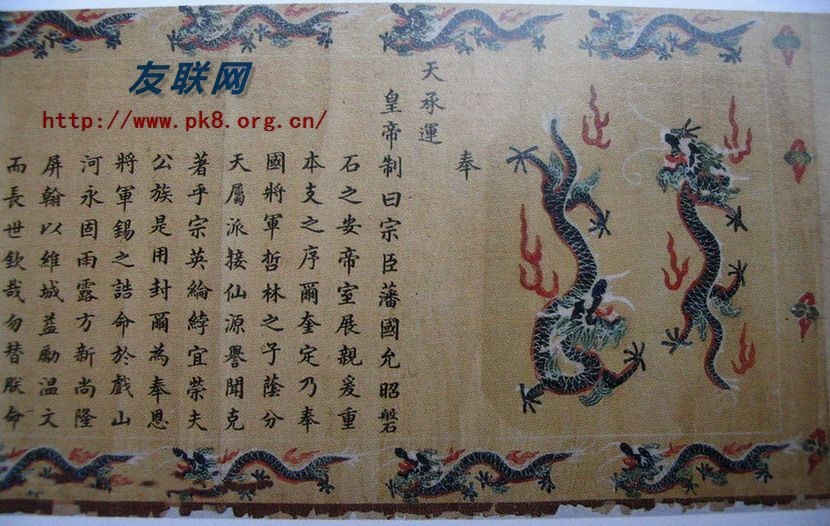 友联网
http://www.pk8.org.cn/
奉
天承運
皇帝制曰宗臣藩國允昭磐
石之安帝室展親爰重
本支之序爾奎定乃奉
國將軍哲林之子蔭分
天屬派接仙源譽聞克
著乎宗英綸綍宜榮夫
公族是用封爾為奉恩
將軍錫之誥命於戲山
河永固雨露方新尚隆
屏翰以維城益勵溫文
而長世欽哉勿替朕命